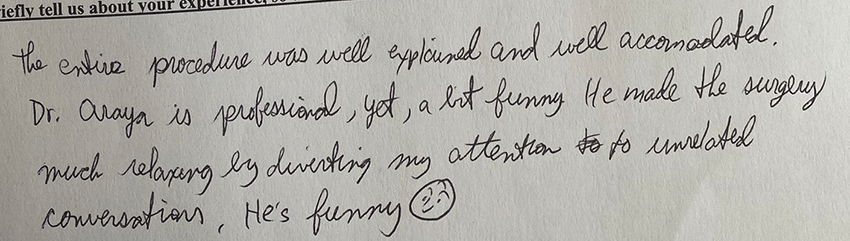 iefly tell us about your experience, s
The entire procedure was well explained and well accomodated.
Dr. Araya is professional, yet, a bit funny He made the surgery
much relaxing by diverting my attention to to unrelated
conversations, He's funny